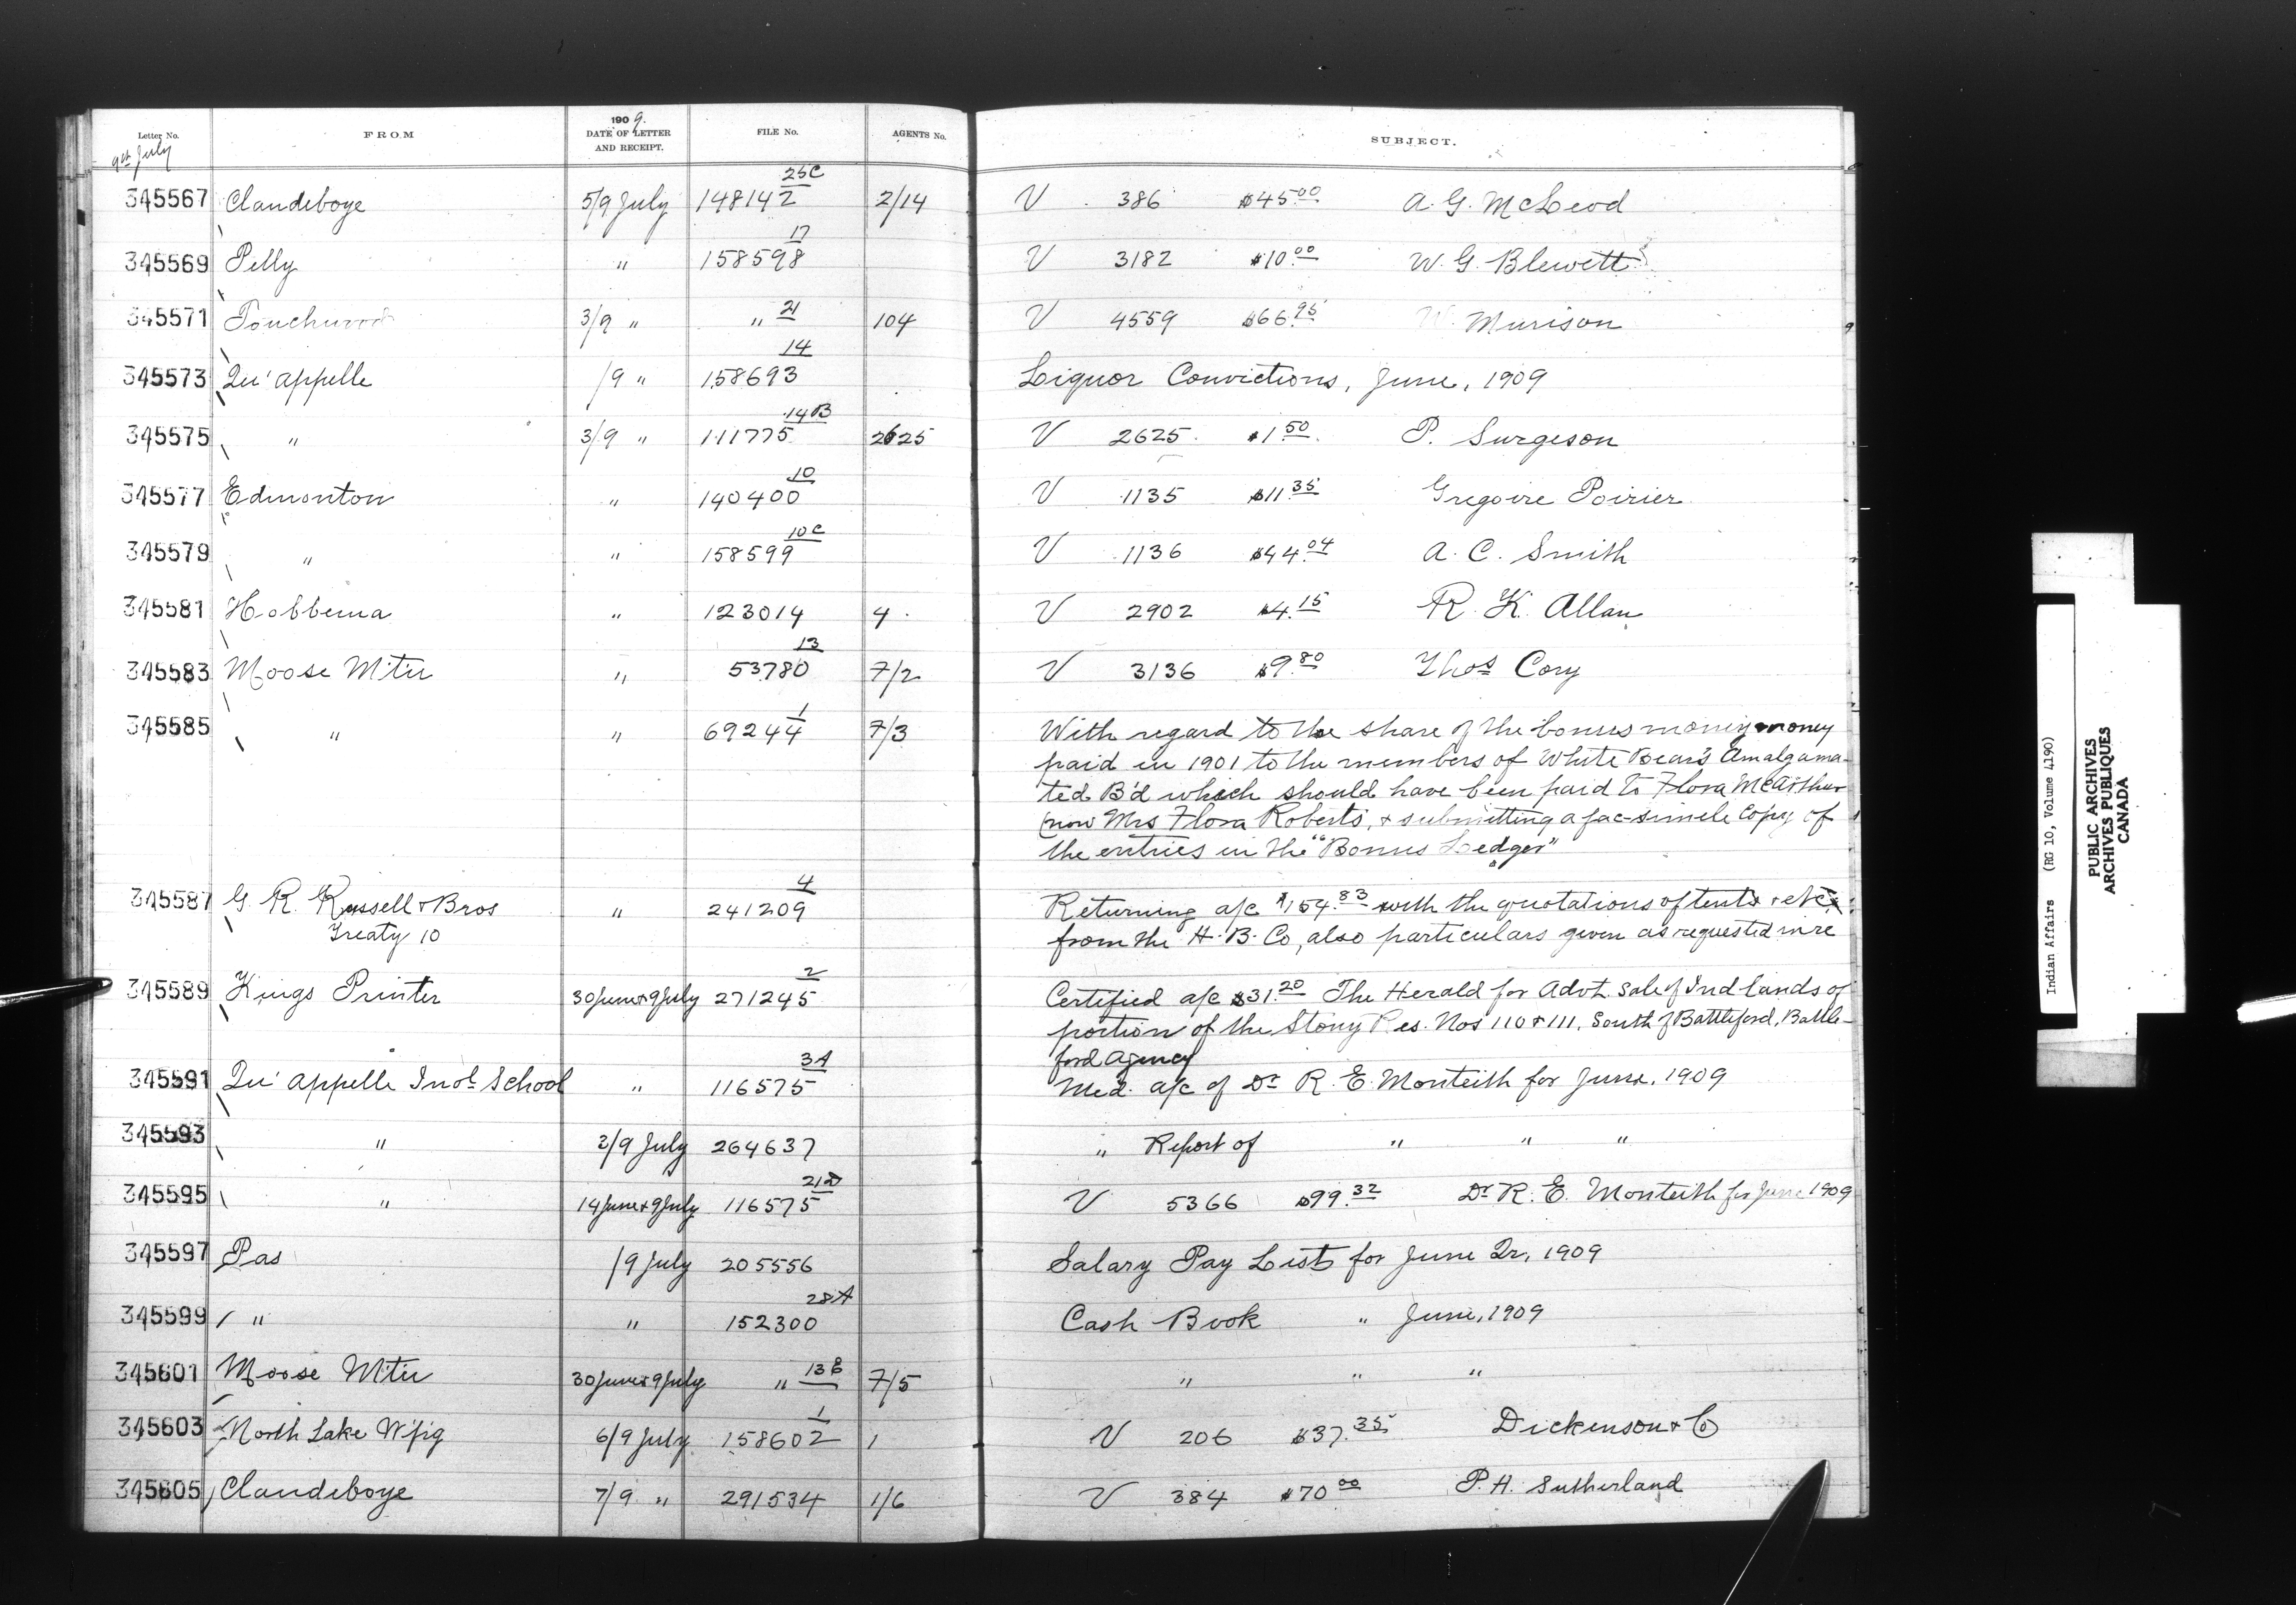 Letter No. FROM 1909. DATE OF LETTER AND RECEIPT. FILE No. AGENTS No. SUBJECT.
9th July
345567 Clandeboye 5/9 July 148142 25C 2/14 V 386 $45.00 A. G. McLeod
345569 Pelly " 158598 17 V 3182 $10.00 W. G. Blewett
345571 Touchwood 3/9 " " 21 104 V 4559 $66.95 W. Murison
345573 Qu'appelle /9 " 158693 14 Liquor Convictions, June, 1909
345575 " 3/9 " 111775 14B 2625 V 2625 $1.50 P. Surgeson
345577 Edmonton " 140400 10 V 1135 $11.35 Gregoire Poirier
345579 " " 158599 10C V 1136 $44.04 A. C. Smith
345581 Hobbema " 123014 4 V 2902 $4.15 R. K. Allan
345583 Moose Mtn " 53780 13 7/2 V 3136 $9.80 Thos Cory
345585 " " 69244 1 7/3 With regard to the share of the bonus money money
paid in 1901 to the members of White Bear's Amalgama-
ted B'd which should have been paid to Flora McArthur
(now Mrs Flora Roberts, & submitting a fac-simile copy of
the entries in the "Bonus Ledger"
345587 G. R. Russell & Bros " 241209 4 Returning a/c $154.83 with the quotations of tents & etc.
Treaty 10 from the H. B. Co, also particulars given as requested in re
345589 Kings Printer 30 June & 9 July 271245 2 Certified a/c $31.20 The Herald for Advt. sale of Ind lands of
portion of the Stony Res. Nos 110 & 111, South of Battleford, Battle-
ford Agency
345591 Qu'appelle Indl School " 116575 3A Med. a/c of Dr R. E. Monteith for June, 1909
345593 " 2/9 July 264637 " Report of " " "
345595 " 14 June & 9 July 116575 21D V 5366 $99.32 Dr R. E. Monteith for June 1909
345597 Pas /9 July 205556 Salary Pay List for June Qr, 1909
345599 " " 152300 28A Cash Book " June, 1909
345601 Moose Mtn 30 June & 9 July " 13B 7/5 " " "
345603 North Lake W'pig 6/9 July 158602 1 1 V 206 $37.35 Dickenson & Co
345605 Clandeboye 7/9 " 291534 1/6 V 384 $70.00 P. H. Sutherland
Indian Affairs (RG 10, Volume 4190)
PUBLIC ARCHIVES
ARCHIVES PUBLIQUES
CANADA